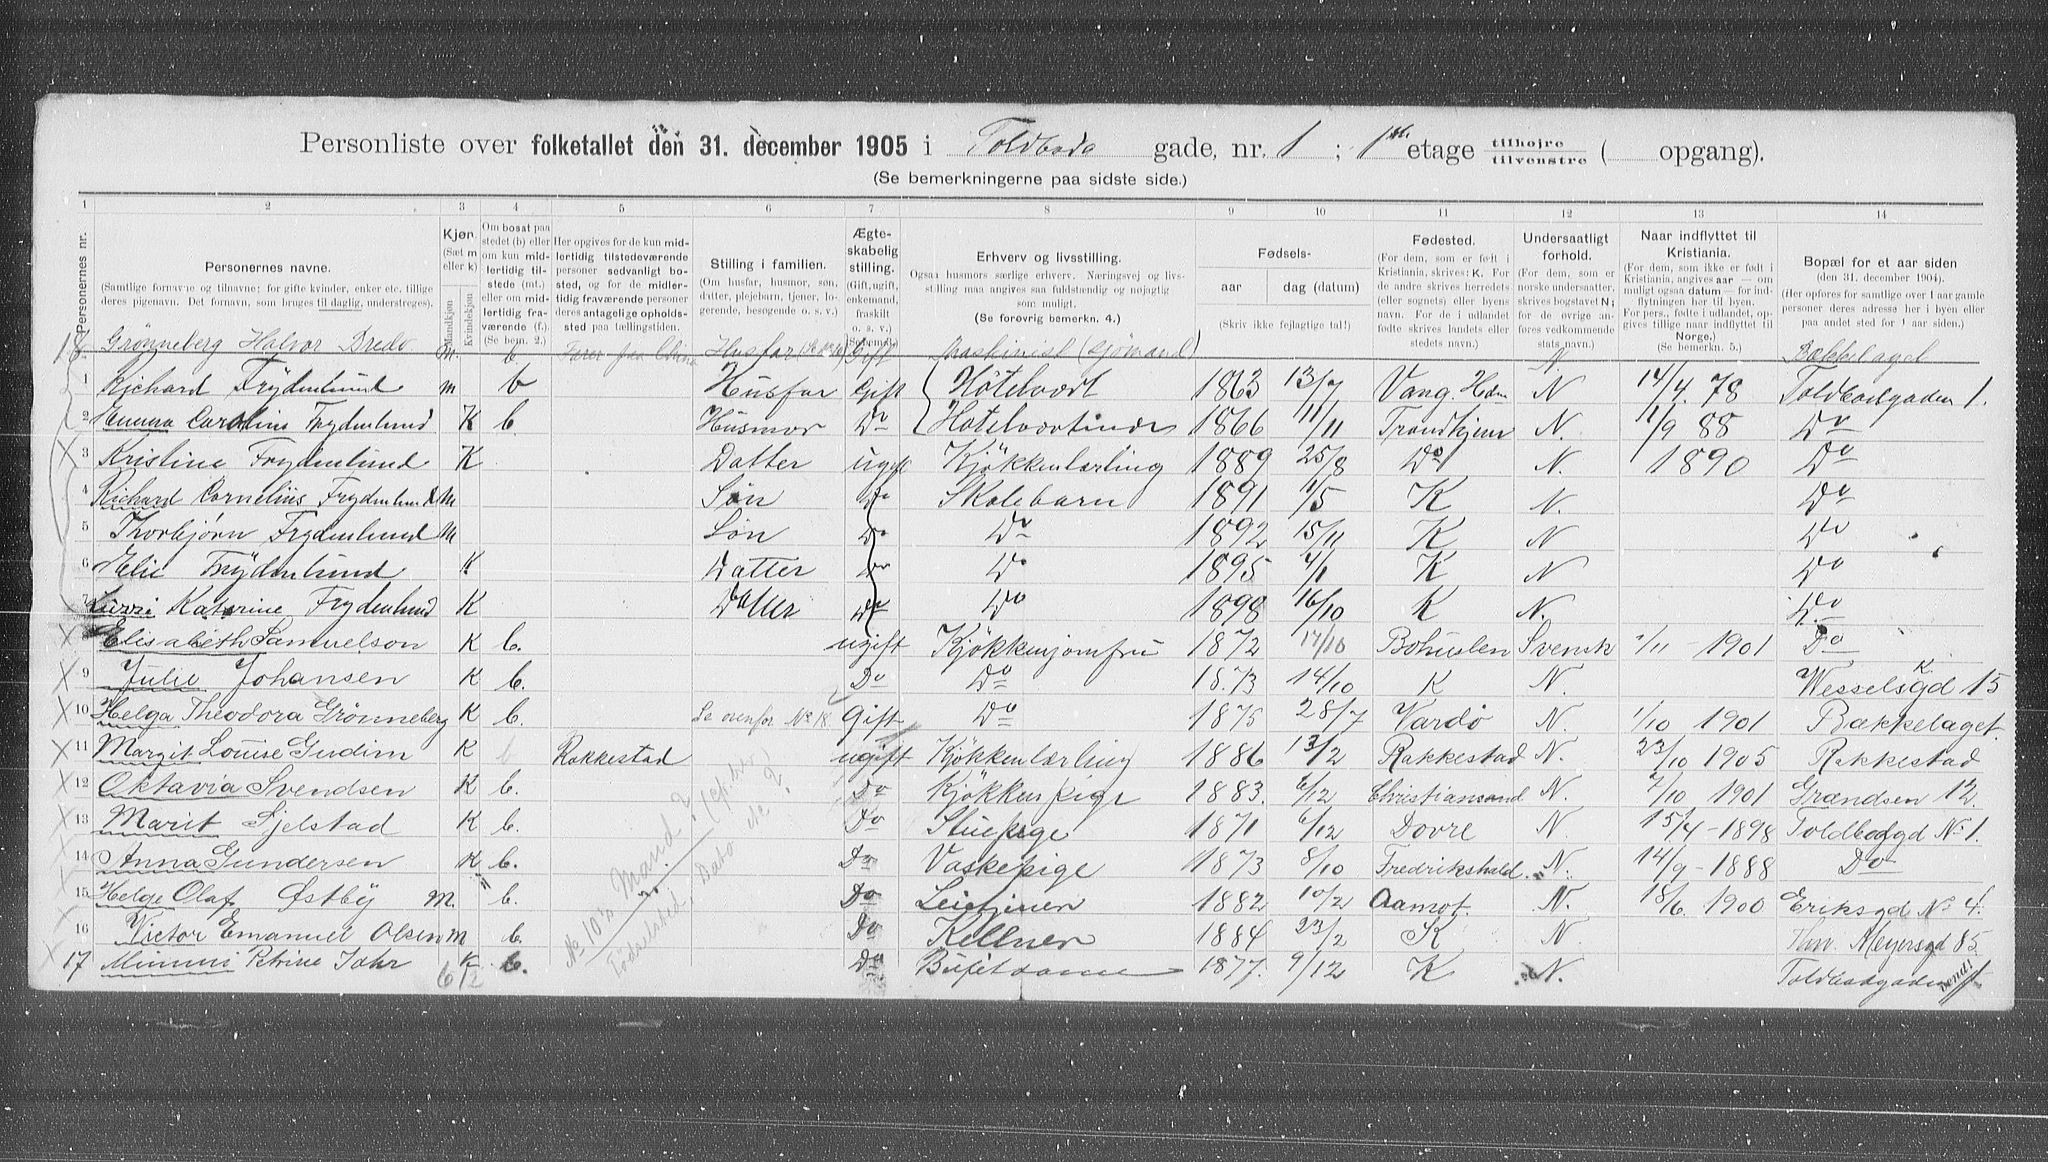 Personliste over folketallet den 31. december 1905 i Toldbod gade, nr. 1 ; 1ste etage tilhøjre tilvenstre ( opgang).
(Se bemerkningerne paa sidste side.)
1 2 3 4 5 6 7 8 9 10 11 12 13 14
Personernes nr.
Personernes navne.
(Samtlige fornavne og tilnavne; for gifte kvinder, enker etc. tillige deres pigenavn. Det fornavn, som bruges til daglig, understreges).
Kjøn. (Sæt m eller k) Mandkjøn Kvindekjøn
Om bosat paa stedet (b) eller om kun midlertidig tilstede (mt.) eller om midlertidig fraværende (f.). (Se bem. 2.)
Her opgives for de kun midlertidig tilstedeværende personer sedvanligt bosted, og for de midlertidig fraværende personer deres antagelige opholdssted paa tællingstiden.
Stilling i familien. (Om husfar, husmor, søn, datter, plejebarn, tjener, logerende, besøgende o. s. v.)
Ægteskabelig stilling. (Gift, ugift, enkemand, fraskilt o. s. v.)
Erhverv og livsstilling. Ogsaa husmors særlige erhverv. Næringsvej og livsstilling maa angives saa fuldstændig og nøjagtig som muligt. (Se forøvrig bemerkn. 4.)
Fødsels- aar dag (datum) (Skriv ikke fejlagtige tal!)
Fødested. (For dem, som er født i Kristiania, skrives: K. For de andre skrives herredets (eller sognets) eller byens navn. For de i udlandet fødte skrives landets eller stedets navn).
Undersaatligt forhold. (For dem, som er norske undersaatter, skrives bogstavet N; for de øvrige anføres vedkommende stats navn).
Naar indflyttet til Kristiania. (For dem, som ikke er født i Kristiania, angives aar — om muligt ogsaa datum — for indflytningen her til byen. For pers., fødte i udlandet, opgives tillige naar indflyttet til Norge.) (Se bemerkn. 5.)
Bopæl for et aar siden (den 31. december 1904). (Her opføres for samtlige over 1 aar gamle personer deres adresse her i byen eller paa andet sted for 1 aar siden.)
18. Grønneberg Halvor Bredo m. b Farer paa China Husfar Gift Maskinist (Sjømand) N Bækkelaget
1 Richard Frydenlund m b Husfar Gift Hotelvært 1863 13/7 Vang. Hdm N 14/4. 78 Toldbodgaden 1.
2 Emma Caroline Frydenlund K b. Husmor Do Hotelværtinde 1866 11/11 Trondhjem N. 11/9 88 Do
3 Kristine Frydenlund K Datter ugift Kjøkkenlærling 1889 25/8 Do N. 1890 Do
4 Richard Cornelius Frydenlund M Søn Do Skolebarn 1891 1/5 K N. Do
5 Thorbjørn Frydenlund M Søn Do Do 1892 15/11 K N Do
6 Elie Frydenlund K Datter Do Do 1895 4/1 K N Do
7 Lizzi Katerine Frydenlund K Datter Do Do 1898 16/10 K N. Do
Elisabeth Samuelson K b. ugift Kjøkkenjomfru 1872 17/10 Bohuslen Svensk 1/11 1901 Do
9 Julie Johansen K b. Do Do 1873 14/10 K N. Wesselsgd 15
10 Helga Theodora Grønneberg K b. Se ovenfor No 18 Gift Do 1875 28/7 Vardø N. 1/10 1901 Bækkelaget.
11 Margit Louise Gudim K b Rakkestad ugift Kjøkkenlærling 1886 13/2 Rakkestad N. 23/10 1905 Rakkestad
12 Oktavia Svendsen K b. Do Kjøkkenpige 1883. 6/12 Christiansand N. 2/10 1901 Grændsen 12.
13 Marit Sjelstad K b. Do Stuepige 1871 6/12 Dovre N 15/4 - 1898 Toldbodgd No 1.
14 Anna Gundersen K b. Do Vaskepige 1873 8/10 Fredrikshald N. 14/9 - 1888 Do
15 Helge Olaf Østby M. b. Do 1882 10/2 Aamot. N. 18/6. 1900 Eriksgd No 4.
16 Victor Emanuel Olsen M b. Do Kellner 1884 23/2 K N Thv. Meyersgd 85.
17 Mimmi Petrine Jahr K b. Do Bufetdame 1877. 9/12 K N. Toldbodgaden 1
6 12 Vend!
No 10's Mand?
Fødselsted, Dato